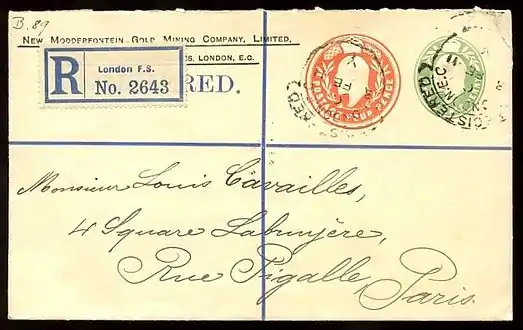 B. 89
NEW MODDERFONTEIN GOLD MINING COMPANY, LIMITED,
LONDON, E.C.
R
London F.S.
No. 2643
RED.
POSTAGE FOUR PENCE
Monsieur Louis Cavailles,
4 Square Labruyère,
Rue Pigalle, Paris.